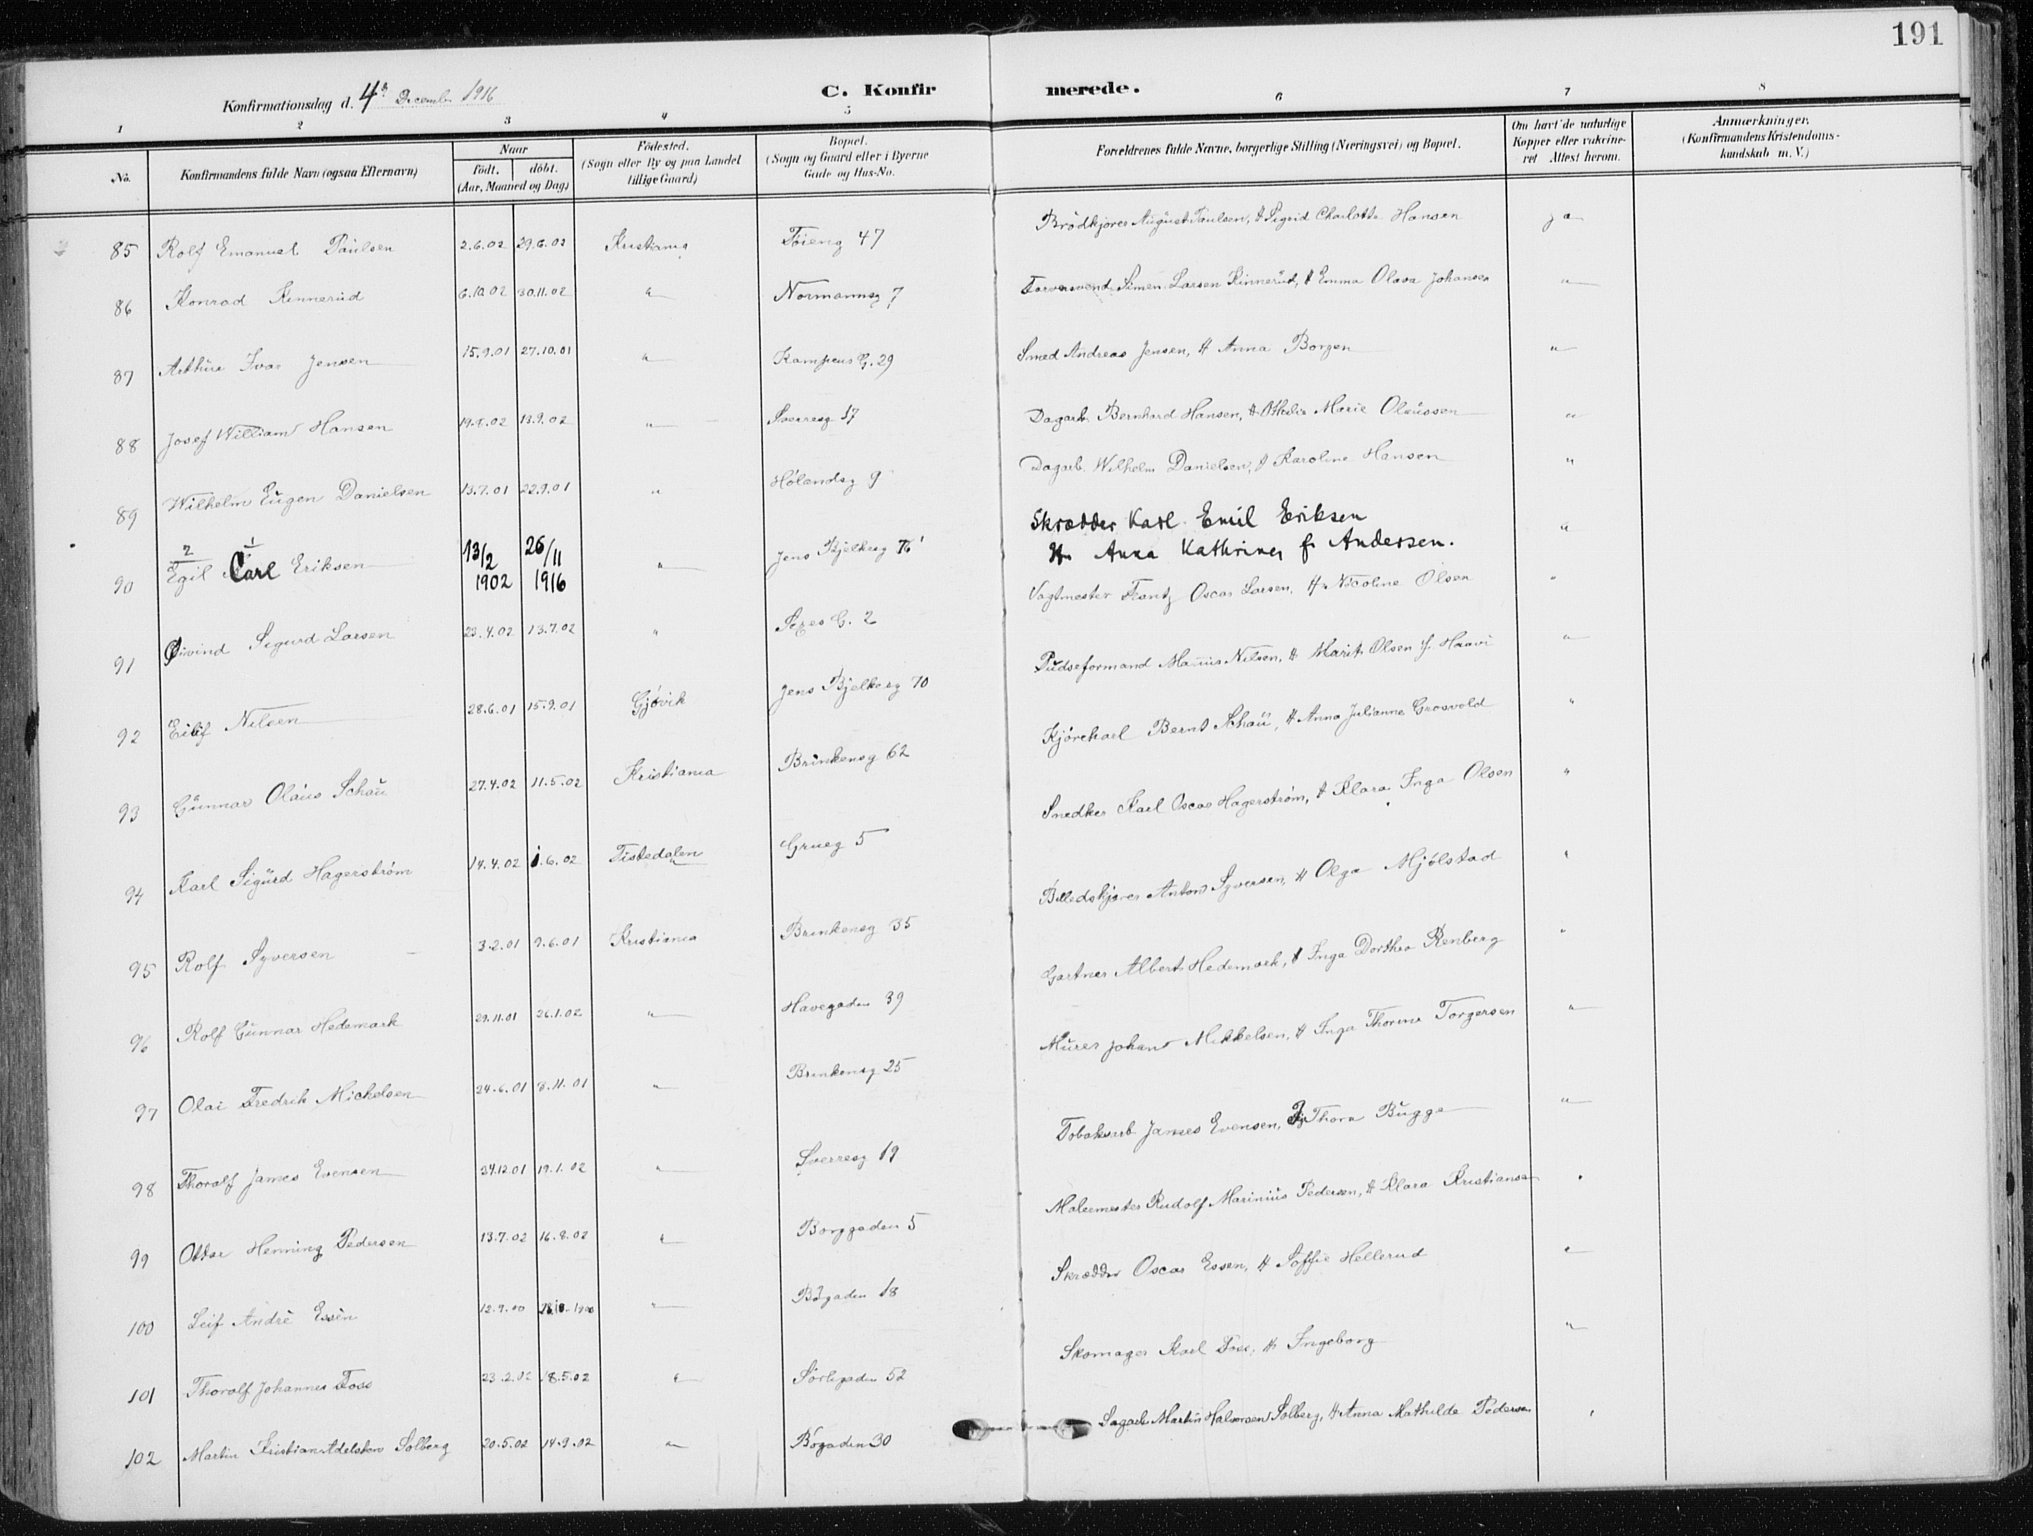 191
Konfirmationsdag d. 4de December 1916
C. Konfirmerede.
1 2 3 4 5 6 7 8
No. Konfirmandens fulde Navn (ogsaa Efternavn) Naar født. døbt. (Aar, Maaned og Dag) Fødested. (Sogn eller By og paa Landet tillige Gaard) Bopæl. (Sogn og Gaard eller i Byerne Gade og Hus-No. Forældrenes fulde Navne, borgerlige Stilling (Næringsvei) og Bopæl. Om havt de naturlige Kopper eller vakcineret Attest herom. Anmærkninger. (Konfirmandens Kristendomskundskab m. V.)
85 Rolf Emanuel Paulsen 2.6.02 29.6.02 Kristiania Tøieng 47 Brødkjører August Paulsen, H Sigrid Charlotte Hansen ja
86 Konrad Kinnerud 6.10.02 30.11.02 " Normannsg 7 Farversvend Simen Larsen Kinnerud, H Emma Olava Johansen "
87 Arthur Ivar Jensen 15.9.01 27.10.01 " Kampens G. 29 Smed Andreas Jensen, H Anna Borgen "
88 Josef William Hansen 19.8.02 13.9.02 " Sverresg 17 Dagarb Bernhard Hansen, H Othilie Marie Olaussen "
89 Wilhelm Eugen Danielsen 13.7.01 22.9.01 " Hølandsg 9 Dagarb. Wilhelm Danielsen, H Karoline Hansen "
90 2 Egil 1 Carl Eriksen 13/2 1902 26/11 1916 " Jens Bjelkesg 76 Skrædder Karl Emil Eriksen H Anna Kathrine f. Andersen. "
91 Øivind Sigurd Larsen 23.4.02 13.7.02 " Sexes G. 2 Vagtmester Frantz Oscar Larsen, H Nicoline Olsen "
92 Eilif Nilsen 28.6.01 15.9.01 Gjøvik Jens Bjelkesg 70 Pudseformand Marius Nilsen, H Marit Olsen f. Haavi "
93 Gunnar Olaus Schau 27.4.02 11.5.02 Kristiania Brinkensg 62 Kjørekarl Bernt Schau, H Anna Julianne Grosvold "
94 Karl Sigurd Hagerstrøm 14.4.02 1.6.02 Tistedalen Grueg 5 Snedker Karl Oscar Hagerstrøm, H Klara Inga Olsen "
95 Rolf Syversen 3.2.01 9.6.01 Kristiania Brinkensg 35 Billedskjærer Anton Syversen, H Olga Mjølstad "
96 Rolf Gunnar Hedemark 29.11.01 26.1.02 " Havegaden 39 Gartner Albert Hedemark, H Inga Dorthea Renberg "
97 Olai Fredrik Michelsen 24.6.01 3.11.01 " Brinkensg 25 Murer Johan Mikkelsen, H Inga Thorine Torgersen "
98 Thoralf James Evensen 24.12.01 19.1.02 " Sverresg 19 Tobaksarb James Evensen, Thora Bugge "
99 Ottar Henning Pedersen 13.7.02 16.8.02 " Borggaden 5 Malermester Rudolf Marinius Pedersen, H Klara Kristiansen "
100 Leif André Essèn 12.9.00 1900 " Bøgaden 18 Skrædder Oscar Essen, H Soffie Hellerud "
101 Thoralf Johannes Foss 23.2.02 18.5.02 " Sørligaden 52 Skomager Karl Foss, H Ingeborg "
102 Martin Kristian Adelsten Solberg 20.5.02 14.9.02 " Bøgaden 30 Sagarb Martin Halvorsen Solberg, H Anna Mathilde Pedersen "